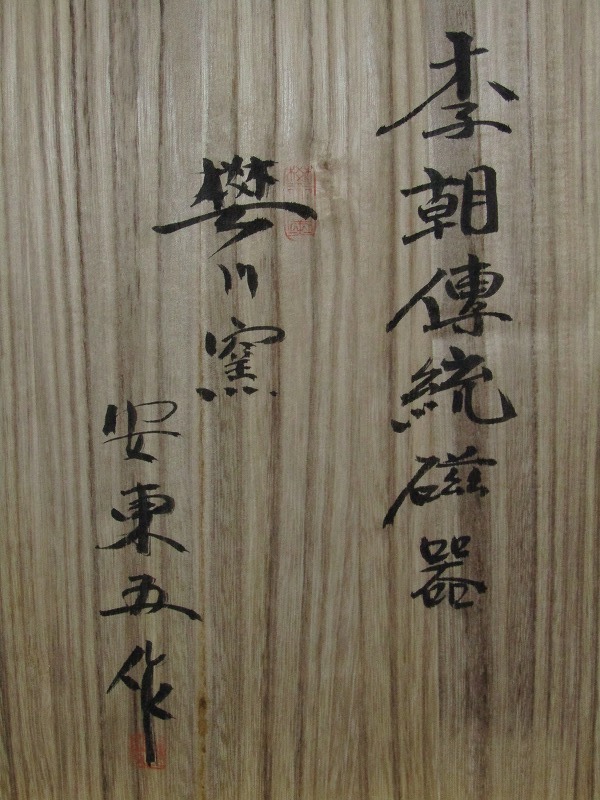 李朝傳統磁器
樊川窯
安東五作